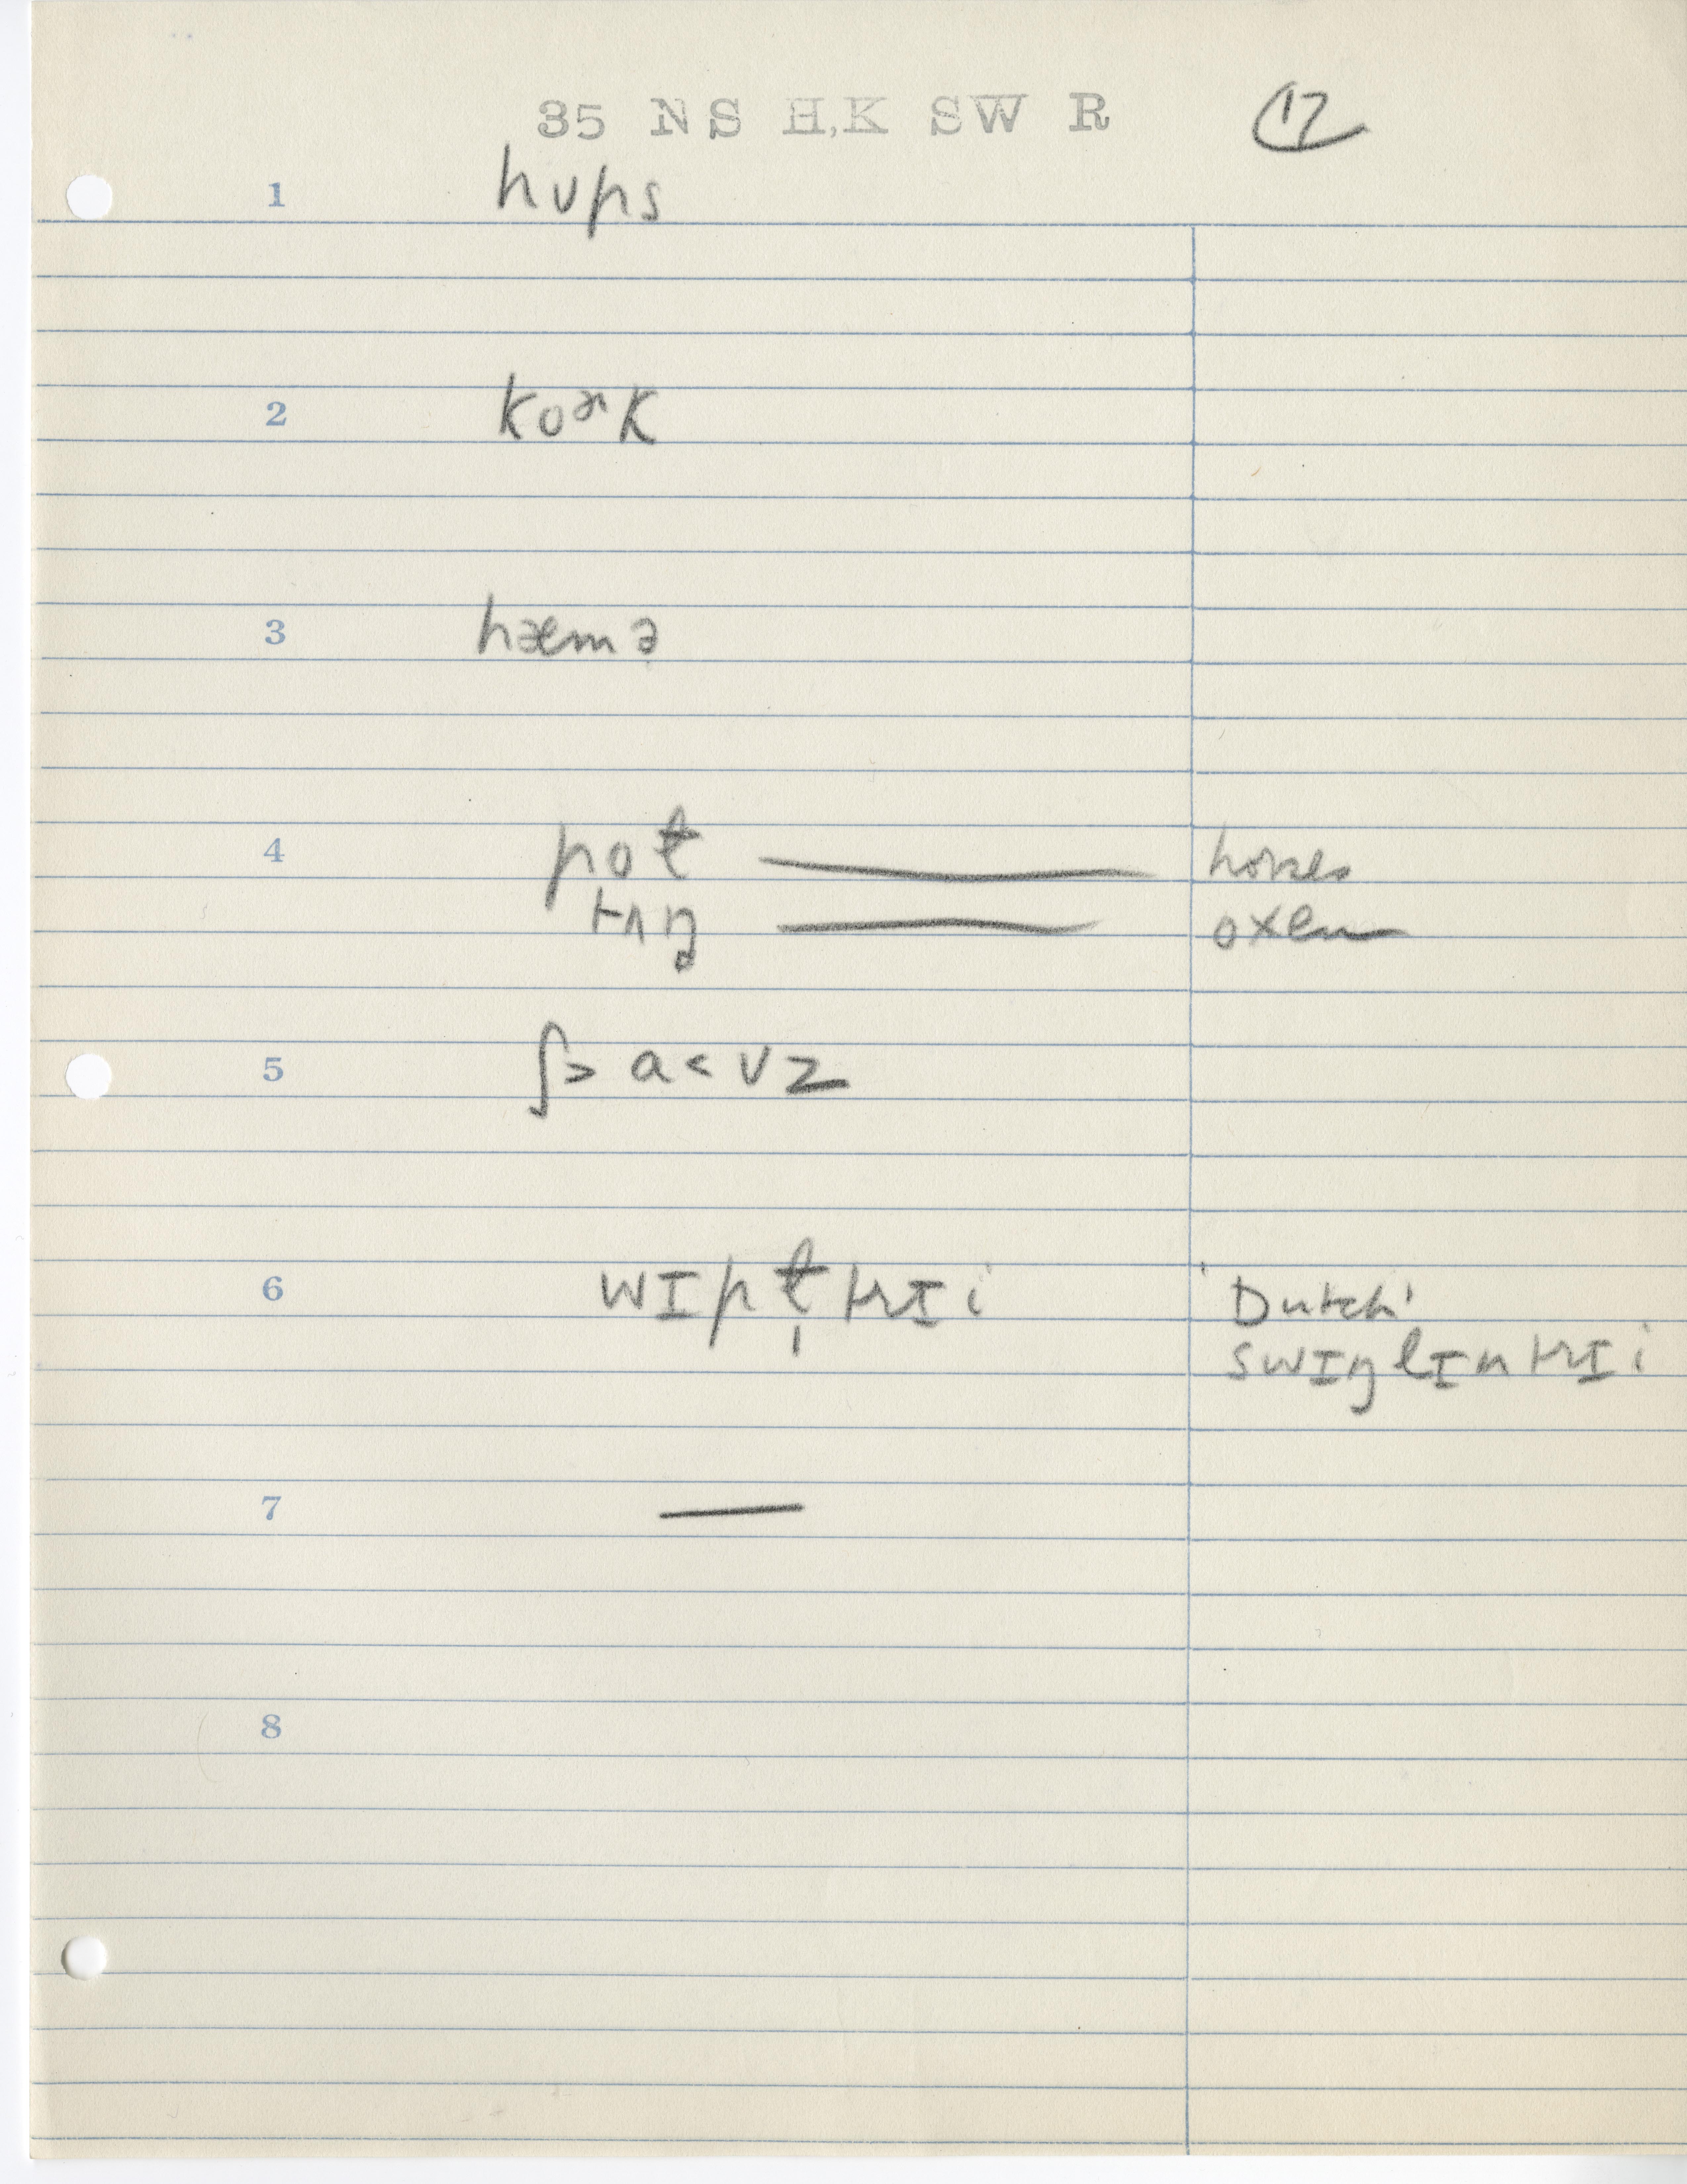 35 NS H,K SW R 17
1 hups
2 koɚk
3 hæmɚ
4 poɫ horses
tʌŋ oxen
5 ʃ> a< vz
6 wɪpɫ̩trɪi 'Dutch'
swɪŋlɪntrɪi
7 —
8